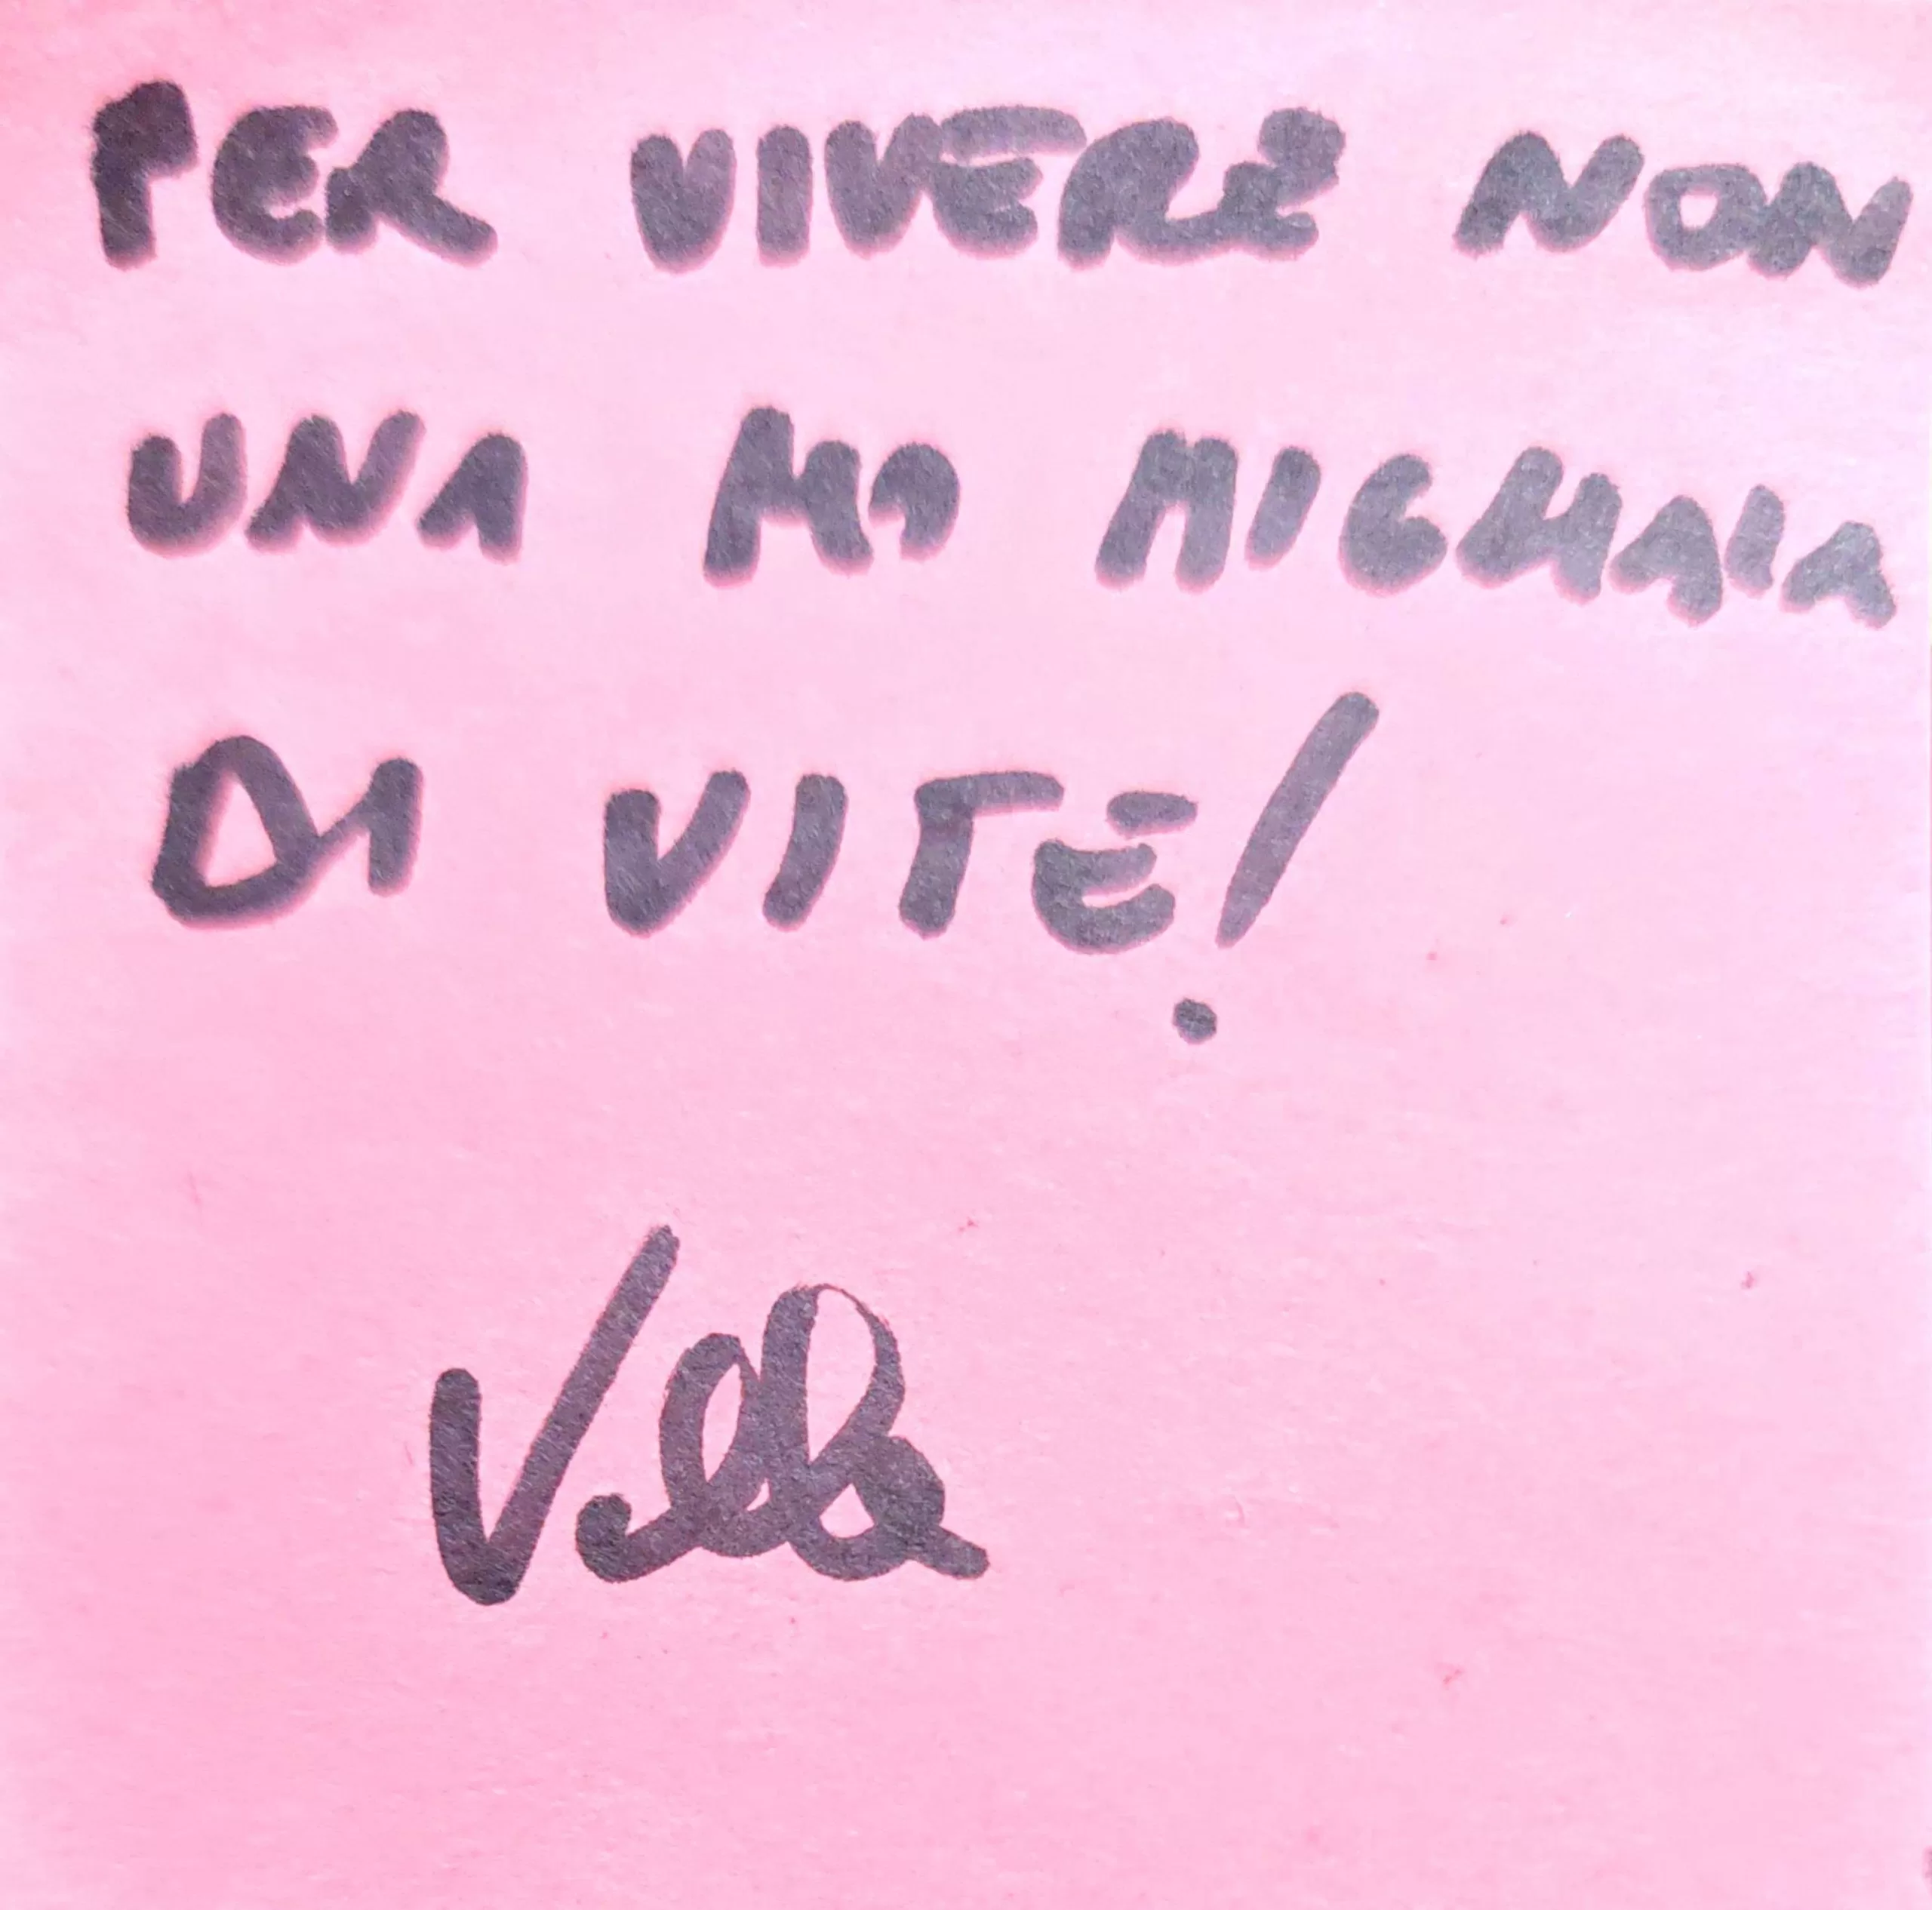 PER VIVERE NON
UNA MA MIGLIAIA
DI VITE!